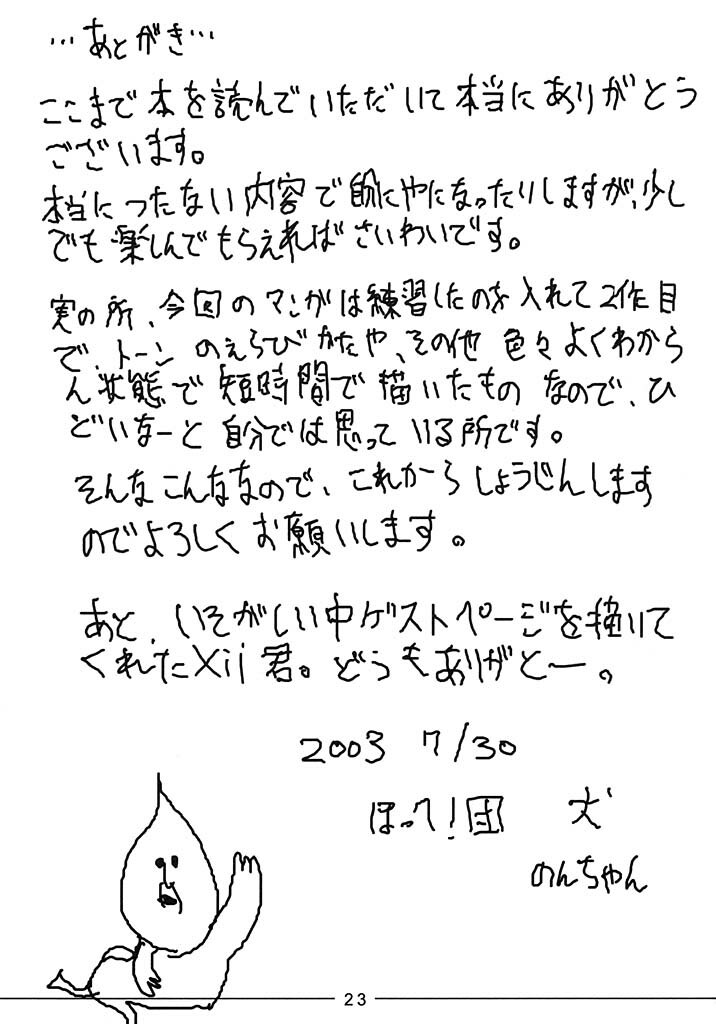 …あとがき…
ここまで本を読んでいただいて本当にありがとう
ございます。
本当につたない内容で なったりしますが、少し
でも楽しんでもらえればさいわいです。
実の所、今回のマンガは練習したのを入れて2作目
で、トーンのえらびかたや、その他 色々よくわから
ん状態で短時間で描いたものなので、ひ
どいなーと自分では思っている所です。
そんなこんななので、これからしょうじんします
のでよろしくお願いします。
あと、いそがしい中ゲストページを描いて
くれたXii君。どうもありがとー。
2003 7/30
ほって!団 犬
のんちゃん
23